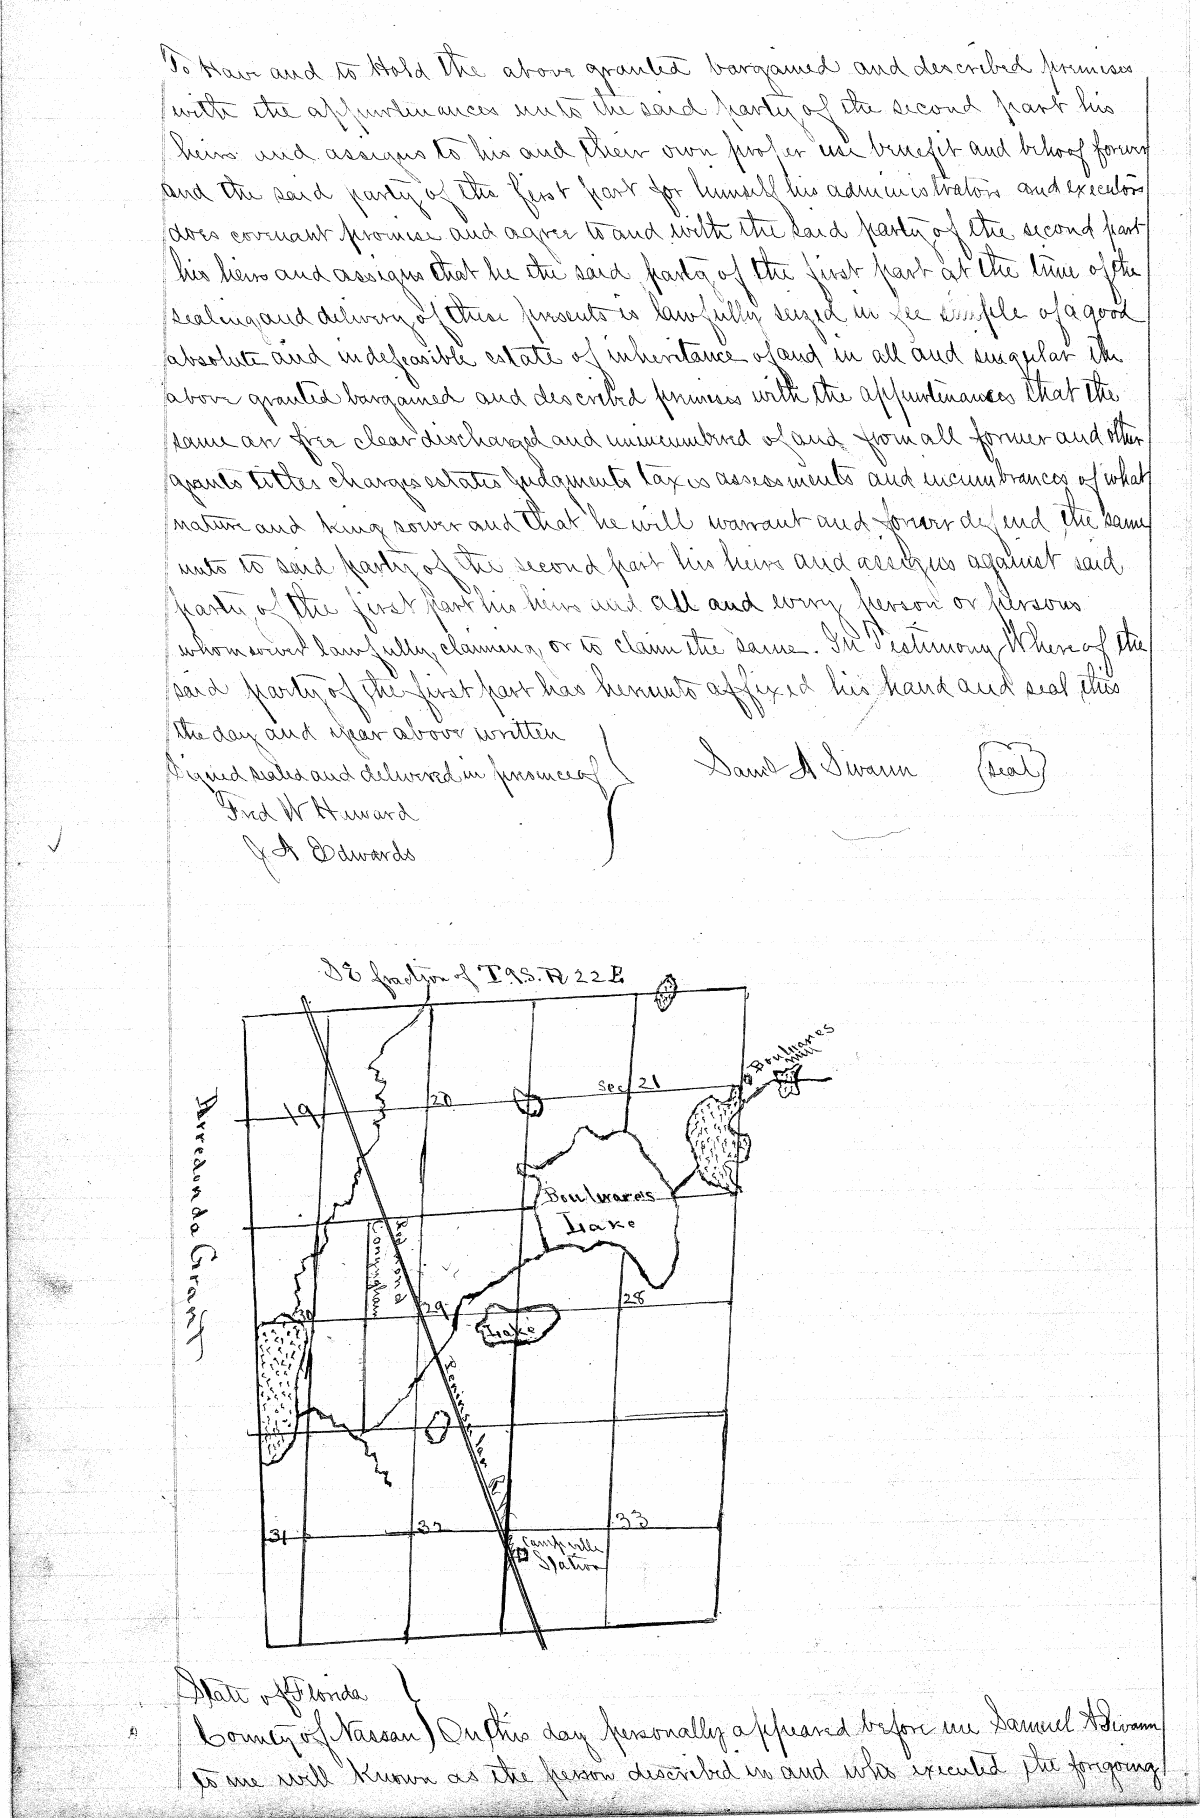 To Have and to Hold the above granted bargained and described premises
with the appurtenances unto the said party of the second part his
heirs and assigns to his and their own proper use benefit and behoof forever
and the said party of the first part for himself his administrators and executors
does covenant promise and agree to and with the said party of the second part
his heirs and assigns that he the said party of the first part at the time of the
sealing and delivery of these presents is lawfully seized in fee simple of a good
absolute and indefeasible estate of inheritance of and in all and singular the
above granted bargained and described premises with the appurtenances that the
same are free clear discharged and unincumbered of and from all former and other
grants tittles charges estates judgments taxes assessments and incumbrances of what
nature and king soever and that he will warrant and forever defend the same
unto to said party of the second part his heirs and assigns against said
party of the first part his heirs and all and every person or persons
whomsoever lawfully claiming or to claim the same. In Testimony Where of the
said party of the first part has hereunto affixed his hand and seal this
the day and year above written
Signed sealed and delivered in presence of
Saml A Swann
seal
Fred W Howard
J A Edwards
SE fraction of T.9S. R 22 E
Boulwares
Mill
Sec 21
20
19
Arredonda Grant
Boulwares
Lake
Redmond
Cunningham
30
29
28
Lake
Peninsular R
31
32
33
Campville
Station
State of Florida
County of Nassau) On this day personally appeared before me Samuel A Swann
to me will known as the person described in and who executed the foregoing